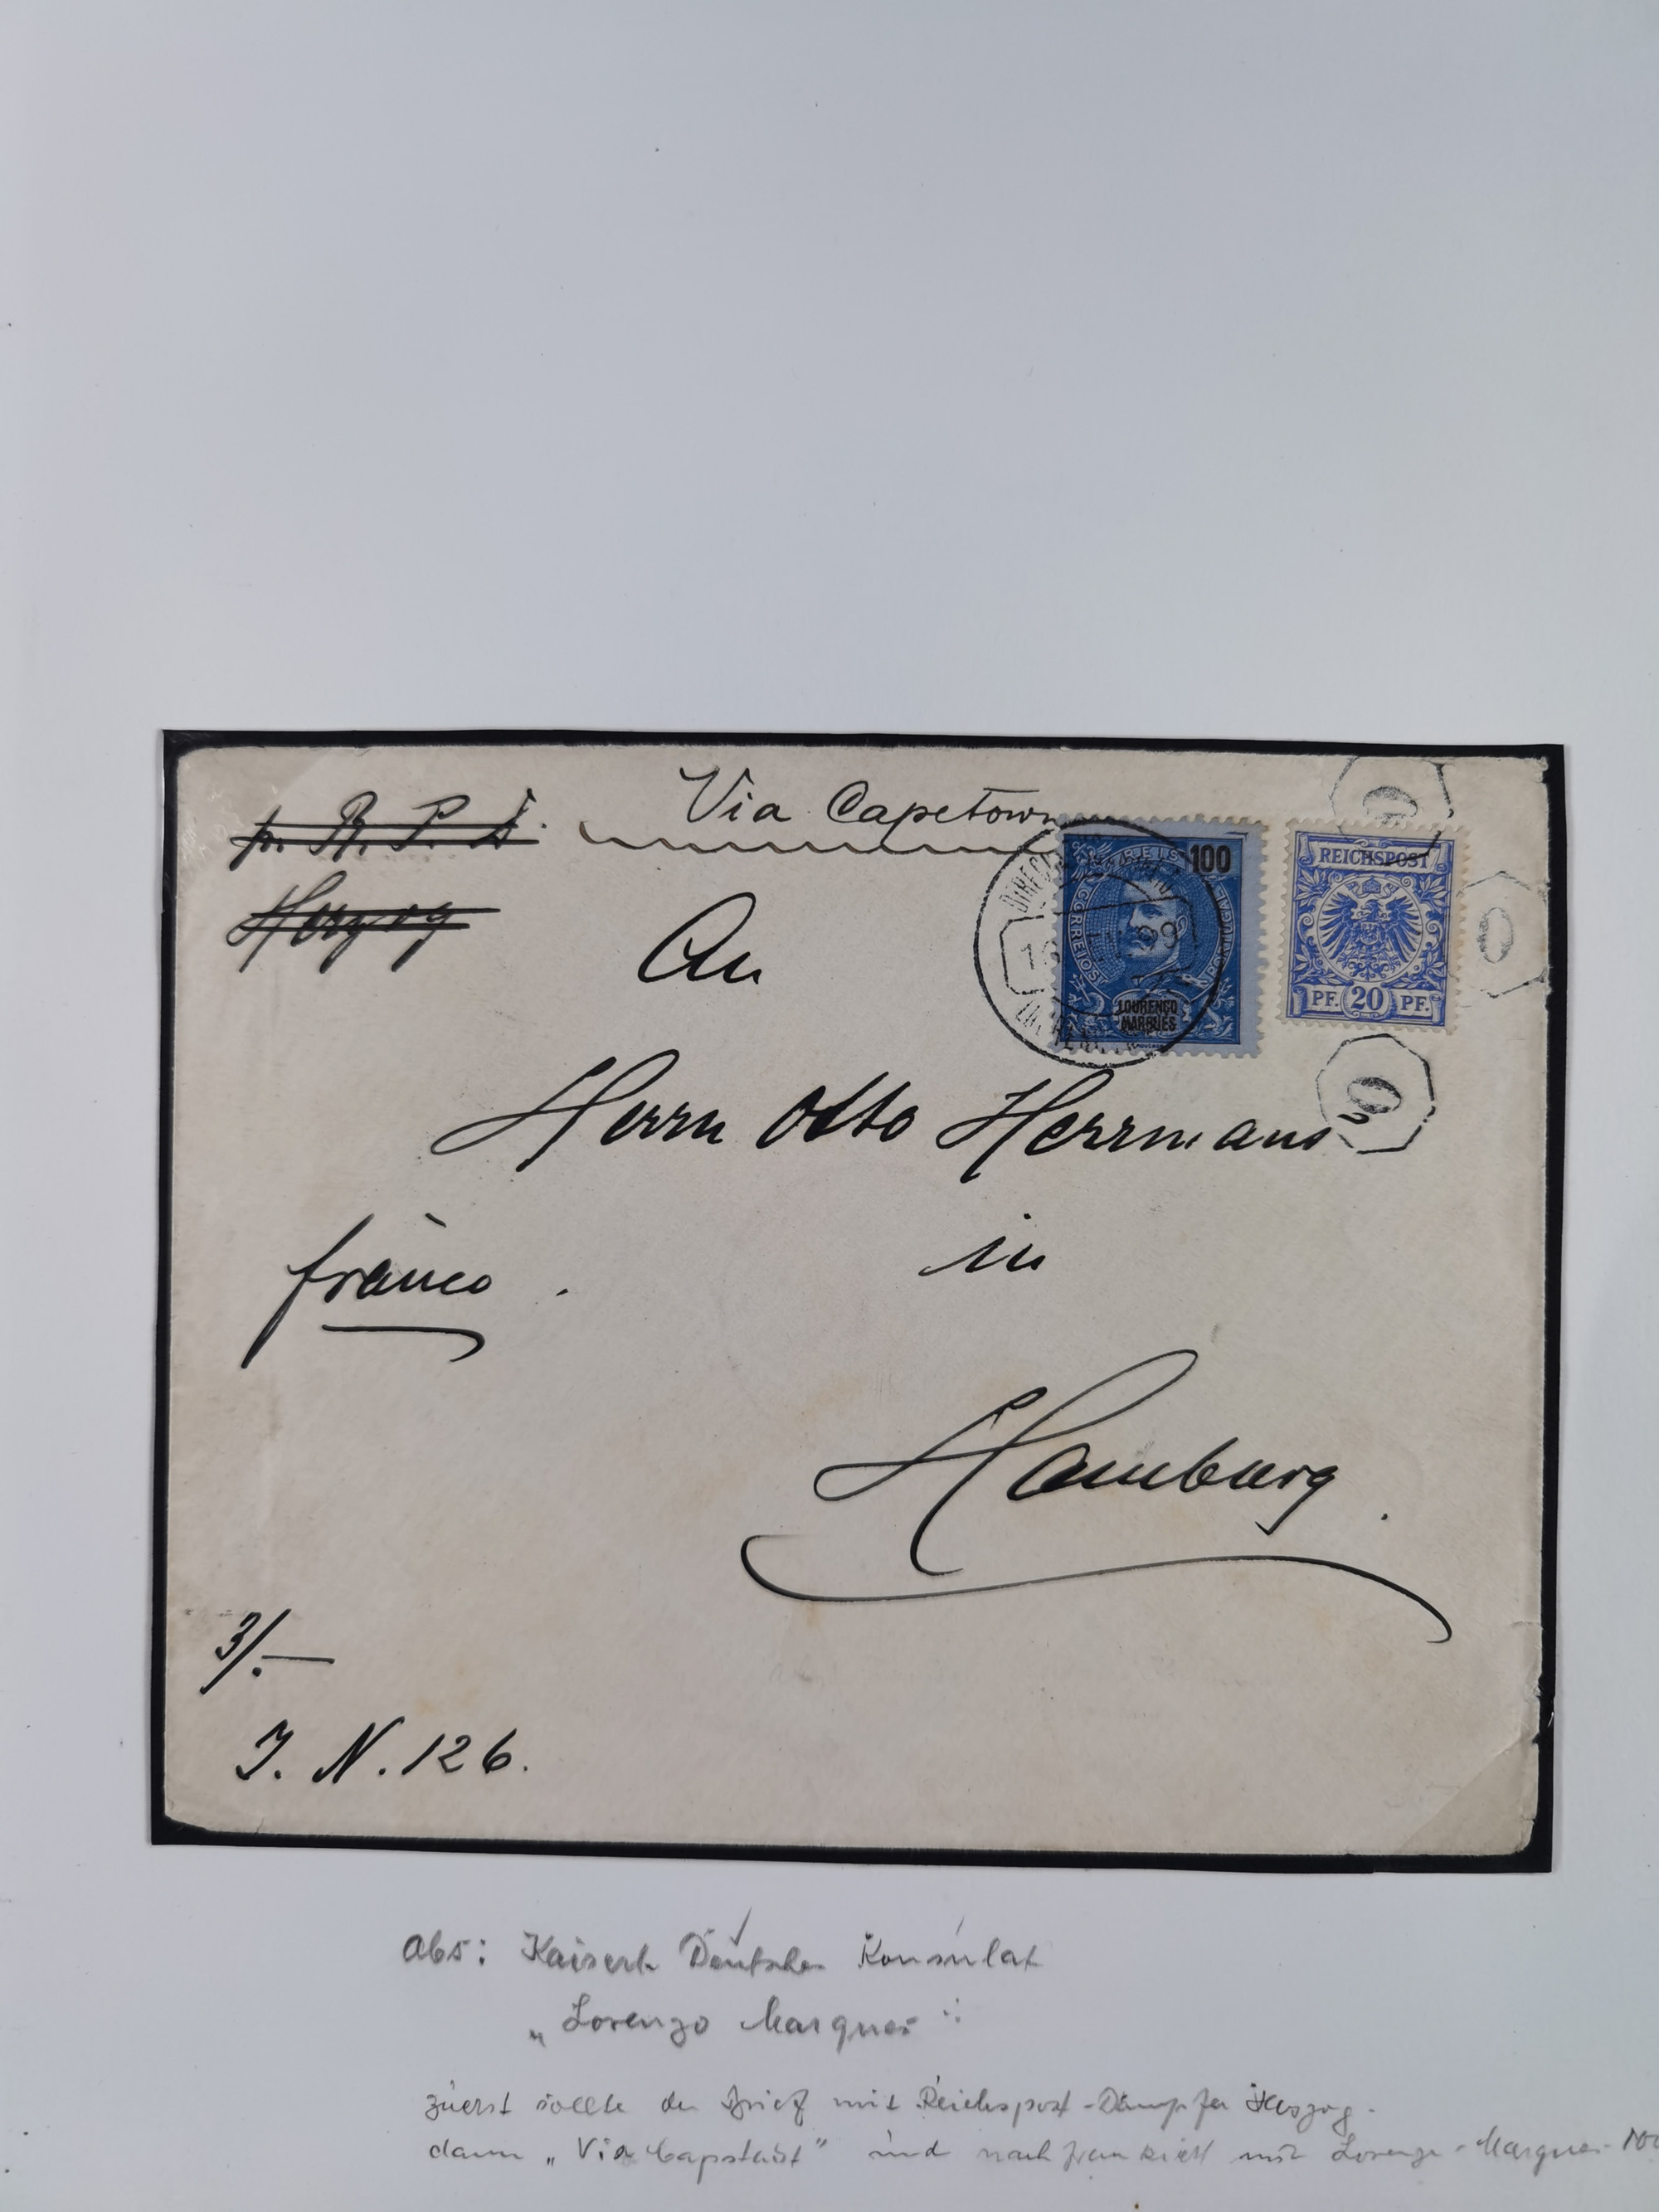 Via Capetown
pr. R. P. D.
Herzog
An
Herrn Otto Herrmann
franco.
in
Hamburg.
3/.—
J. N. 126.
REIS 100
CORREIOS
PORTUGAL
LOURENÇO
MARQUES
REICHSPOST
PF. 20 PF.
0
0
0
Abs: Kaiserl. Deutsches Konsulat
„Lorenzo Marques“
zuerst sollte der Brief mit Reichspost-Dampfer Herzog.
dann „Via Capstadt“ und nachfrankiert mit Lorenzo-Marques-100